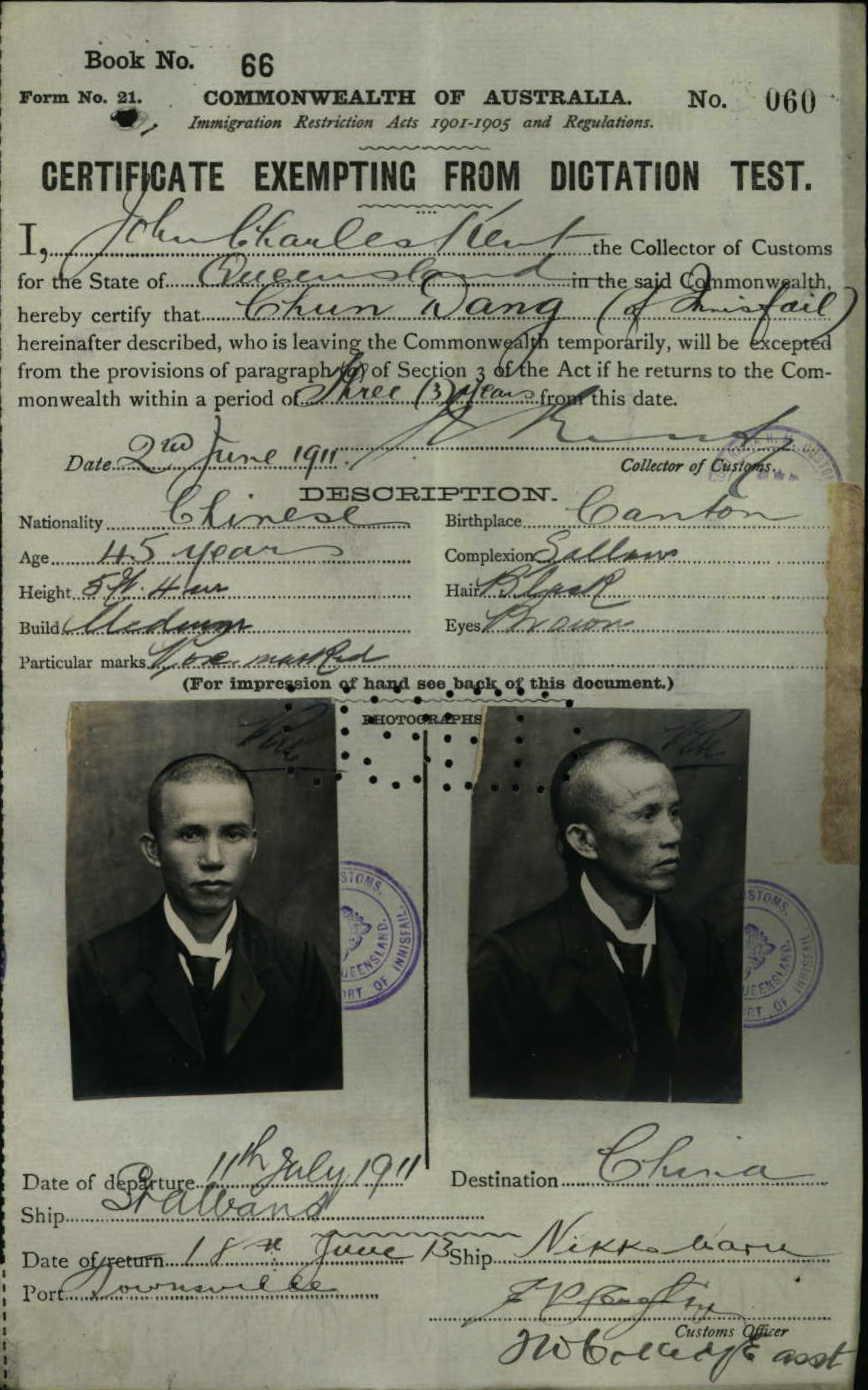 Book No. 66
Form No. 21. COMMONWEALTH OF AUSTRALIA. No. 060
Immigration Restriction Acts 1901-1905 and Regulations.
CERTIFICATE EXEMPTING FROM DICTATION TEST.
I, John Charles Kent the Collector of Customs
for the State of Queensland in the said Commonwealth,
hereby certify that Chun Dang (of Innisfail)
hereinafter described, who is leaving the Commonwealth temporarily, will be excepted
from the provisions of paragraph (a) of Section 3 of the Act if he returns to the Com-
monwealth within a period of Three (3) years from this date.
Date 2nd June 1911.
Collector of Customs.
DESCRIPTION.
Nationality Chinese Birthplace Canton
Age 45 years Complexion Sallow
Height 5 ft. 4 in Hair Black
Build Medium Eyes Brown
Particular marks Pox marked
(For impression of hand see back of this document.)
PHOTOGRAPHS
CUSTOMS. QUEENSLAND. PORT OF INNISFAIL.
CUSTOMS. QUEENSLAND. PORT OF INNISFAIL.
Date of departure 11th July 1911 Destination China
Ship St Albans
Date of return 18th June 13 Ship Nikko Maru
Port Townsville
Customs Officer
asst